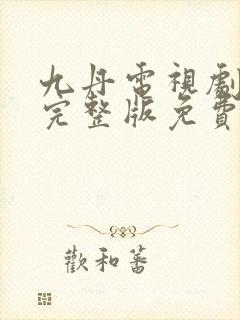 九丹電視劇
完整版免費
歡和蕃